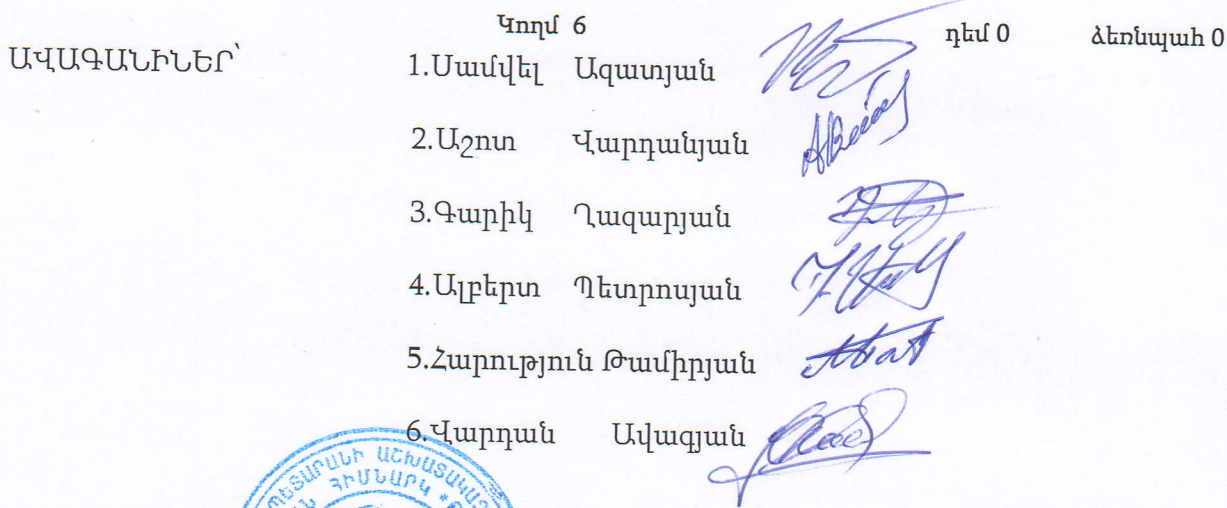 Կողմ 6 դեմ 0 ձեռնպահ 0
ԱՎԱԳԱՆԻՆԵՐ՝
1.Սամվել Ազատյան
2.Աշոտ Վարդանյան
3.Գարիկ Ղազարյան
4.Ալբերտ Պետրոսյան
5.Հարություն Թամիրյան
6.Վարդան Ավագյան
ՊԵՏԱՐԱՆԻ ԱՇԽԱՏԱԿԱԶ
ՀԻՄՆԱՐԿ